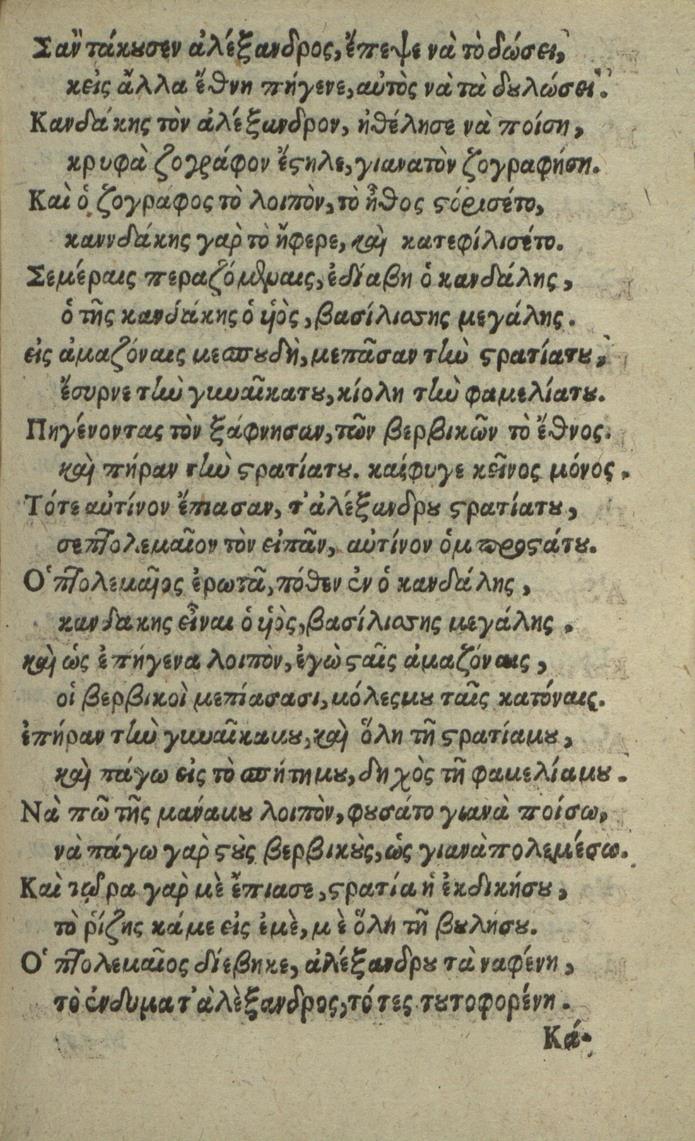 Σαν τάκουσεν ἀλέξανδρος, ἔπεψε νὰ τὸ δώσει,
κεἰς ἄλλα ἔθνη πήγενε, αὐτὸς νὰ τὰ δουλώσει.
Κανδάκης τὸν ἀλέξανδρον, ἠθέλησε νὰ ποίση,
κρυφὰ ζογράφον ἔστηλε, γιανατὸν ζογραφήση.
Καὶ ὁ ζογράφος τὸ λοιπὸν, τὸ ἦθος στόρισέτο,
καννδάκης γαρ τὸ ἤφερε, καὶ κατεφίλισέτο.
Σεμέραις περαζόμεναις, ἐδίαβη ὁ κανδάλης,
ὁ τῆς κανδάκης ὁ ὑιὸς, βασίλισσης μεγάλης.
εἰς ἀμαζόναις μεσπουδὴ, μεπᾶσαν τὴν στρατίατου,
ἔσυρνε τὴν γυναῖκατου, κίολη τὴν φαμελίατου.
Πηγένοντας τὸν ξάφνησαν, τῶν βερβικῶν τὸ ἔθνος.
καὶ πήραν τὴν στρατίατου. καίφυγε κεῖνος μόνος.
Τότε αὐτίνον ἔπιασαν, τ'ἀλέξανδρου στρατίατου,
σεπτολεμαῖον τὸν εἰπᾶν, αὐτίνον ὁμπροστάτου.
Ὁ πτολεμαῖος ἐρωτᾶ, πόθεν ἐν ὁ κανδάλης,
κανδακης εἶναι ὁ ὑιὸς, βασίλισσης μεγάλης.
καὶ ὡς ἐπήγενα λοιπὸν, ἐγὼ σταῖς ἀμαζόναις,
οἱ βερβικοὶ μεπίασασι, μόλεςμου ταῖς κατόναις.
ἐπήραν τὴν γυναῖκαμου, καὶ ὅλη τῆ στρατίαμου,
καὶ πάγω εἰς τὸ σπήτημου, δηχὸς τῆ φαμελίαμου.
Νὰ πῶ τῆς μανάμου λοιπὸν, φουσάτο γιανὰ ποίσω,
νὰ πάγω γαρ στοὺς βερβικοὺς, ὡς γιανὰπολεμέσω.
Καὶ τώρα γαρ μὲ ἔπιασε, στρατία ἡ ἐκδικήσου,
τὸ ῥίζης κάμε εἰς ἐμὲ, μὲ ὅλη τῆ βουλήσου.
Ὁ πτολεμαῖος δίεβηκε, ἀλέξανδρου τὰ ναφένη,
τὸ ἐνδυμα τ'ἀλὲξανδρος, τότες τουτοφορένη.
Κά-